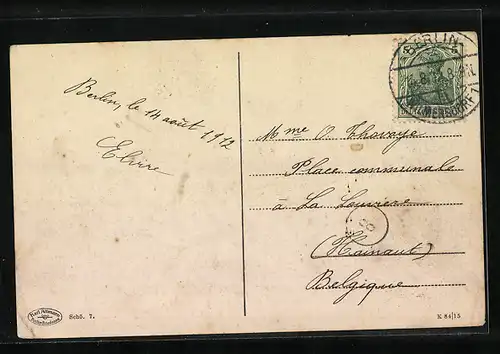 Berlin, le 14 août 1912
Elvire
Mme O. Thovaye
Place communale
à La Louvière
(Hainaut)
Belgique
BERLIN
WILMERSDORF 1
8
Schö. 7.
K 84/15